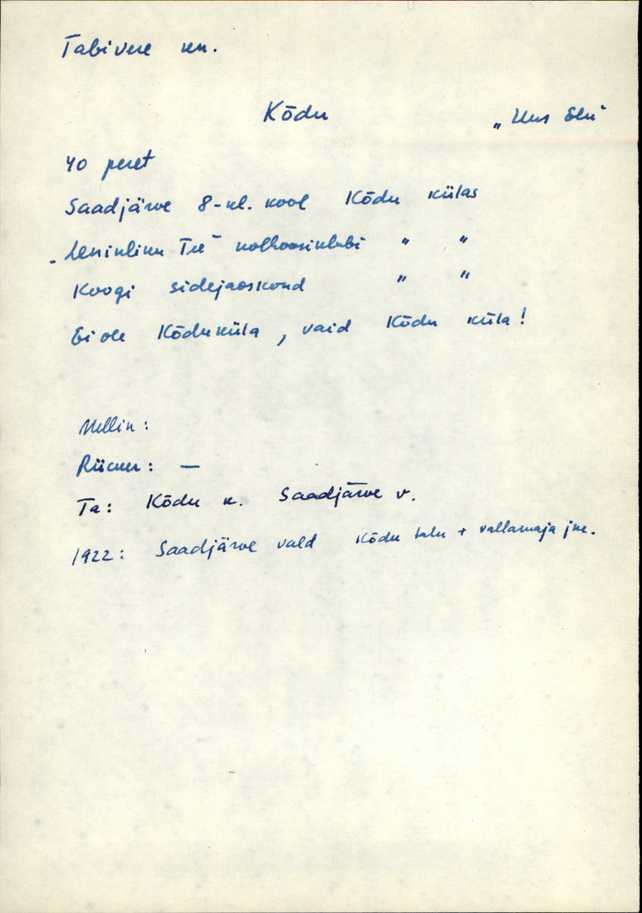 Tabivere kn.
Kõdu „Uus Elu"
40 peret
Saadjärve 8-kl. kool Kõdu külas
„Leninliku Tee" kolhoosiklubi " "
Koogi sidejaoskond " "
Ei ole Kõduküla, vaid Kõdu küla!
Mellin:
Rücker: —
Ta: Kõdu k. Saadjärve v.
1922: Saadjärve vald Kõdu talu + vallamaja jne.